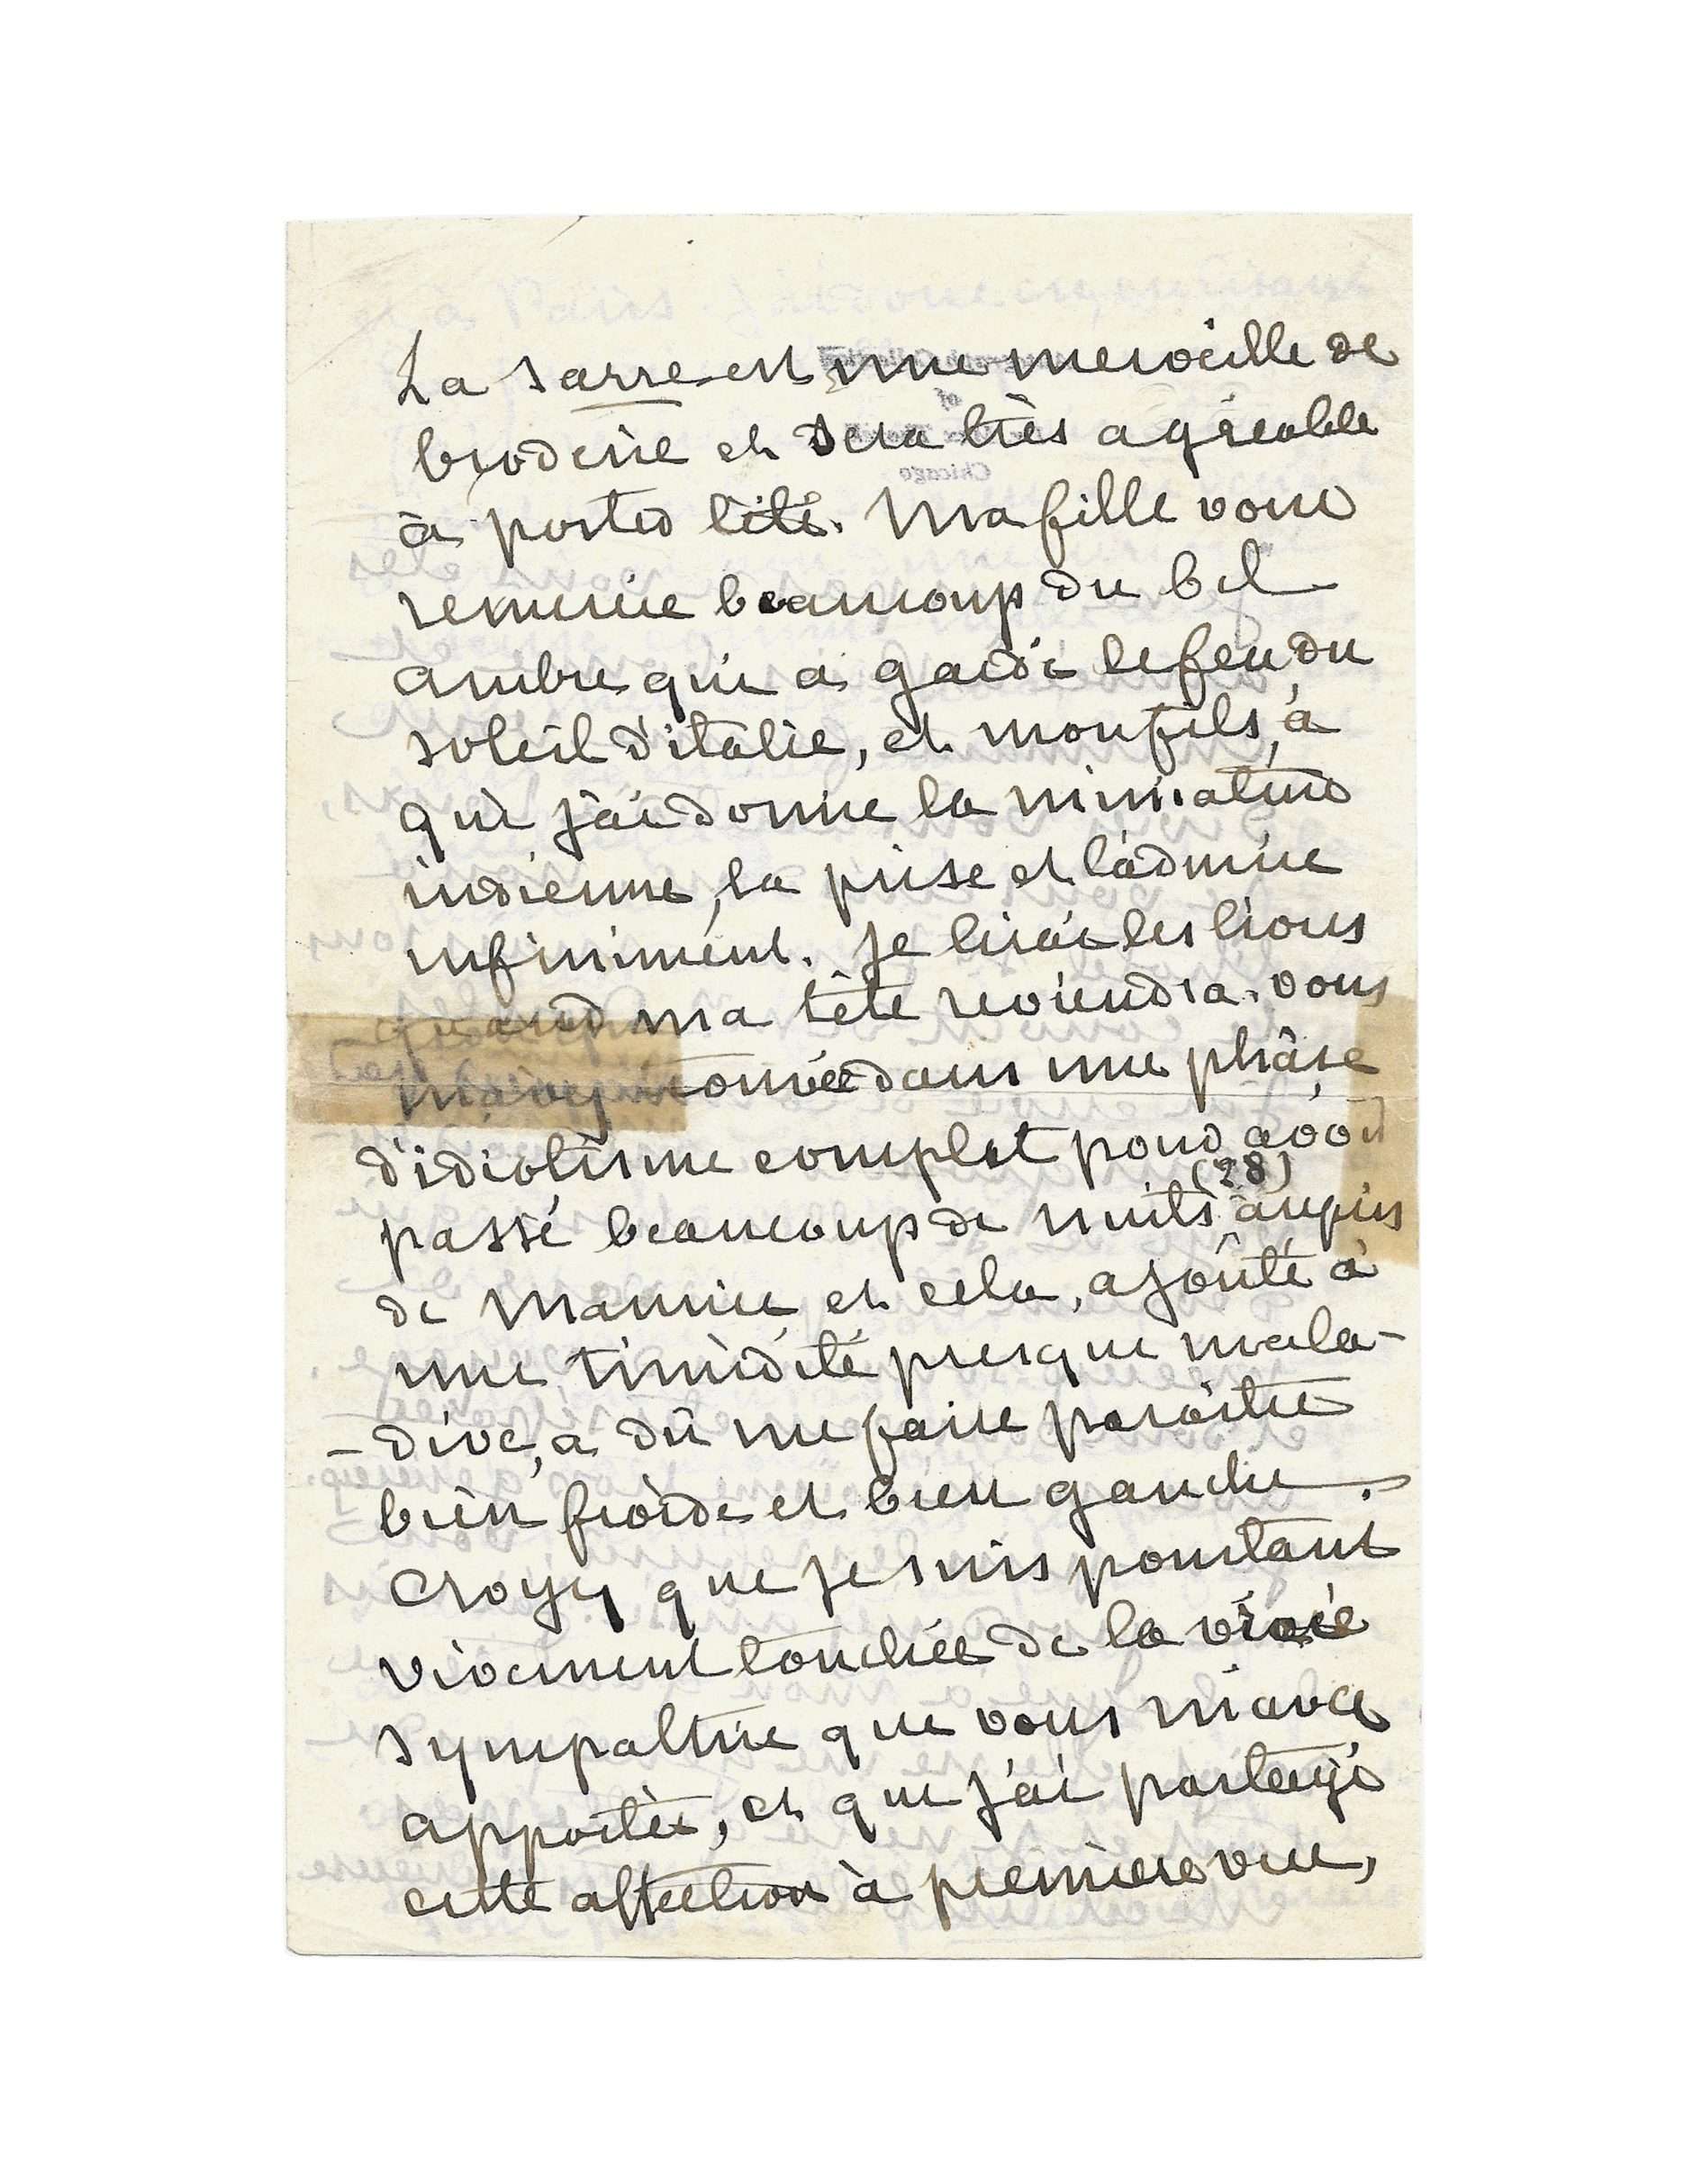 La sarre est une merveille de
broderie et sera très agréable
à porter l'été. Ma fille vous
remercie beaucoup du bel
ambre qui a gardé le feu du
soleil d'italie, et mon fils, à
qui j'ai donné la miniature
indienne, la prise et l'admire
infiniment. Je lirai les livres
quand ma tête reviendra. vous
m'avez trouvée dans une phâse
d'idiotisme complet pour avoir
passé beaucoup de nuits (28) auprès
de Mamie et cela, ajoûté à
une timidité presque mala-
-dive, a dû me faire paraître
bien froide et bien gauche.
Croyez que je suis pourtant
vivement touchée de la vraie
sympathie que vous m'avez
apportée, et que j'ai partagé
cette affection à première vue,
Chicago
of